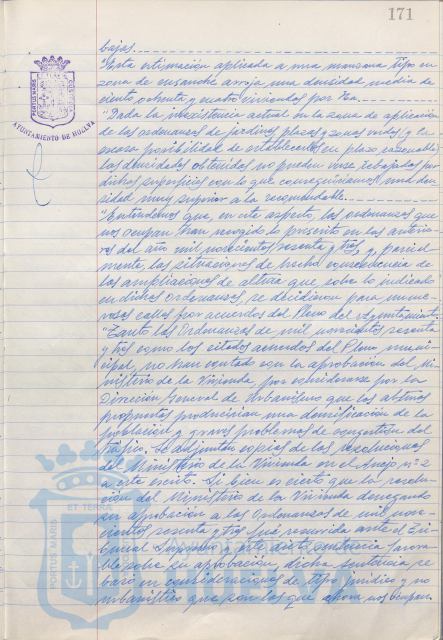 171
bajas.
"Esta estimación aplicada a una manzana tipo en
zona de ensanche arroja una densidad media de
ciento ochenta y cuatro viviendas por Ha.
"Dada la inexistencia actual en la zona de aplicación
de las ordenanzas de jardines, plazas y zonas verdes y la
escasa posibilidad de establecerlos en plazo razonable,
las densidades obtenidas no pueden verse rebajadas por
dichas superficies con lo que conseguiríamos una den-
sidad muy superior a la recomendable.
"Entendemos que, en este aspecto, las ordenanzas que
nos ocupan han recogido lo prescrito en las anterio-
res del año mil novecientos sesenta y tres, y, parcial-
mente, las situaciones de hecho consecuencia de
las ampliaciones de altura que, sobre lo indicado
en dichas Ordenanzas, se decidieron para nume-
rosas calles por acuerdos del Pleno del Ayuntamiento.
"Tanto las Ordenanzas de mil novecientos sesenta
y tres como los citados acuerdos del Pleno muni-
cipal, no han contado con la aprobación del Mi-
nisterio de la Vivienda, por considerarse por la
Dirección General de Urbanismo que las alturas
propuestas producirían una densificación de la
población y graves problemas de congestión del
tráfico. Se adjuntan copias de las resoluciones
del Ministerio de la Vivienda en el Anejo nº 2
a este escrito. Si bien es cierto que la resolu-
ción del Ministerio de la Vivienda denegando
su aprobación a las Ordenanzas de mil nove-
cientos sesenta y tres fué recurrida ante el Tri-
bunal Supremo y éste dictó sentencia favora-
ble sobre su aprobación, dicha sentencia se
basó en consideraciones de tipo jurídico y no
urbanístico que son las que ahora nos ocupan.
PORTUS MARIS
ET TERRAE CUSTODIA
AYUNTAMIENTO DE HUELVA
PORTUS MARIS
ET TERRA